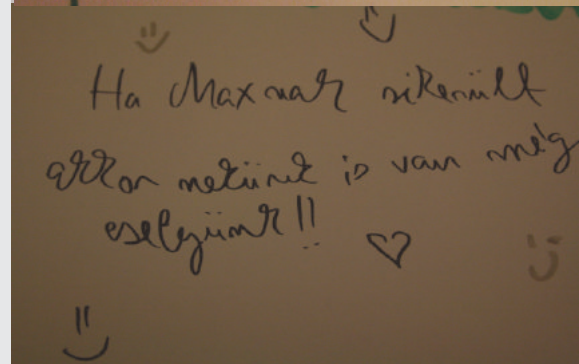 Ha Maxnak sikerült
akkor nekünk is van még
esélyünk!! ♡